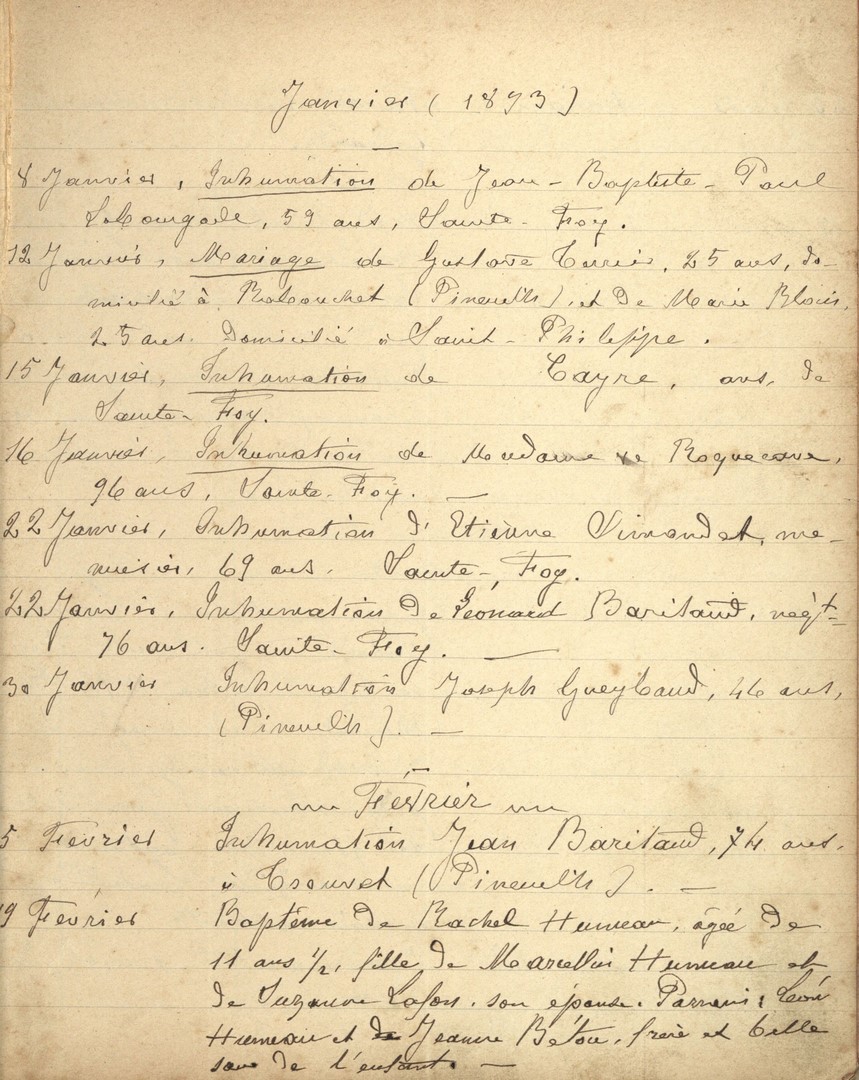 Janvier (1893)
8 Janvier, Inhumation de Jean-Baptiste-Paul
59 ans, Sainte-Foy.
12 Janvier, Mariage de Gustave 25 ans, do-
micilié à (Pineuilh), et De Marie Blouin,
25 ans. Domicilié à Saint-Philippe.
15 Janvier, Inhumation de Cayre, ans, de
Sainte-Foy.
16 Janvier, Inhumation de Madame de Roquecave,
96 ans, Sainte-Foy. —
22 Janvier, Inhumation d'Etienne Simondet, me-
nuisier, 69 ans. Sainte-Foy.
22 Janvier, Inhumation De Léonard Baritaud, négt-
76 ans. Sainte-Foy. —
30 Janvier Inhumation Joseph Gueybaud, 46 ans,
(Pineuilh). —
Février
5 Février Inhumation Jean Baritaud, 74 ans.
à (Pineuilh). —
19 Février Baptême De Rachel Humeau, âgée De
11 ans 1/2, fille De Marcellin Humeau et
de Suzanne Lafon. son épouse. Parrain: Léon
Humeau et Jeanne Béton, frère et belle
sœur De l'enfant. —